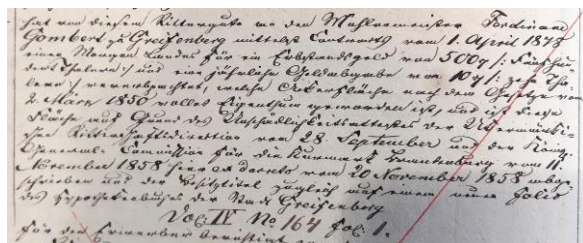 hat von diesem Rittergute an den Mühlenmeister Ferdinand
Gombert zu Greifenberg mittelst Contracts vom 1. April 1848
einen Morgen Landes für ein Erbstandsgeld von 500 /: Fünfhun-
dert Thalern :/ und eine jährliche Geldabgabe von 10 /: zehn Tha-
lern :/ vererbpachtet, welche Ackerfläche nach dem Gesetze vom
2. März 1850 volles Eigenthum geworden ist, und ist diese
Fläche auf Grund des Unschädlichkeitsattestes der Ukermärki-
schen Ritterschaftsdirektion vom 28. September und der König.
General-Commission für die Kurmark Brandenburg vom 11.
November 1858 hier ex decreto vom 20 November 1858 abge-
schrieben und der Besitztitel zugleich auf einem neuen Folio
des Hypothekenbuchs der Stadt Greifenberg
Vol. IV No 164 fol. 1.
für den Erwerber berichtigt